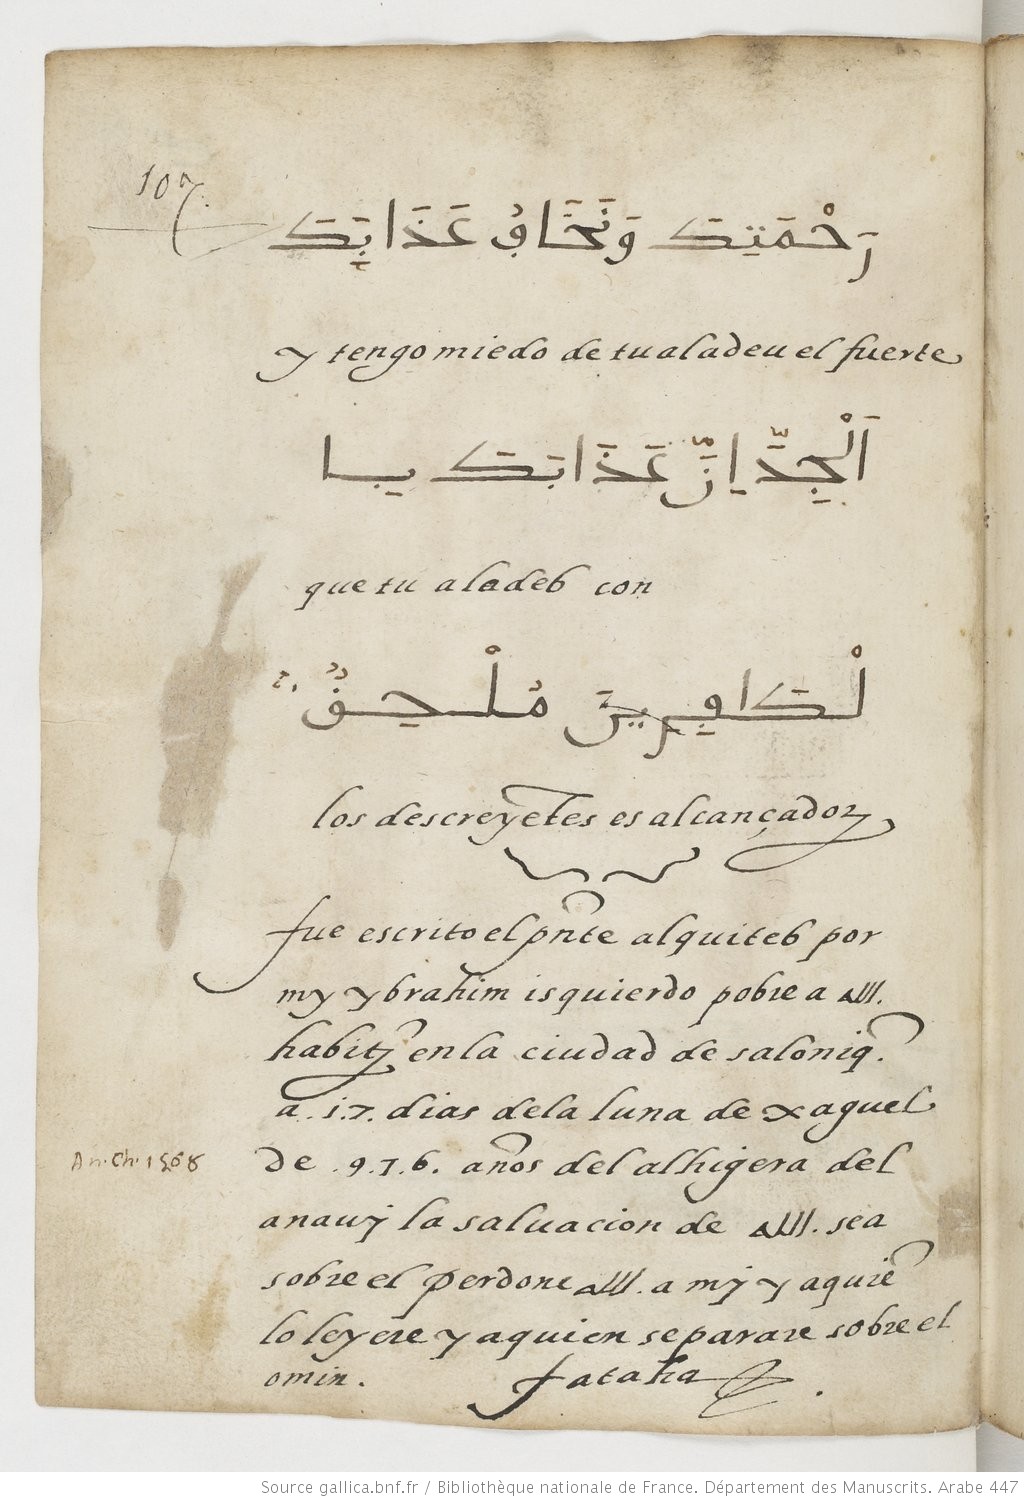 107.
رَحْمَتِكَ وَنَخَافُ عَذَابَكَ
y tengo miedo de tu aladeu el fuerte
اَلْجِدَّ اِنَّ عَذَابَكَ بِا
que tu aladeb con
لْكَافِرِينَ مُلْحِقٌ
los descreyētes es alcançador
fue escrito el pn̄te alquiteb por
my ybrahim isquierdo pobre a الله.
habit̄ en la ciudad de saloniq̄.
a .17. dias de la luna de xaguel
An. Ch. 1568
de .976. años del alhigera del
anauj la saluacion de الله. sea
sobre el perdone الله. a mj y a quiē
lo leyere y a quien se parare sobre el
omin. fataha
Source gallica.bnf.fr / Bibliothèque nationale de France. Département des Manuscrits. Arabe 447